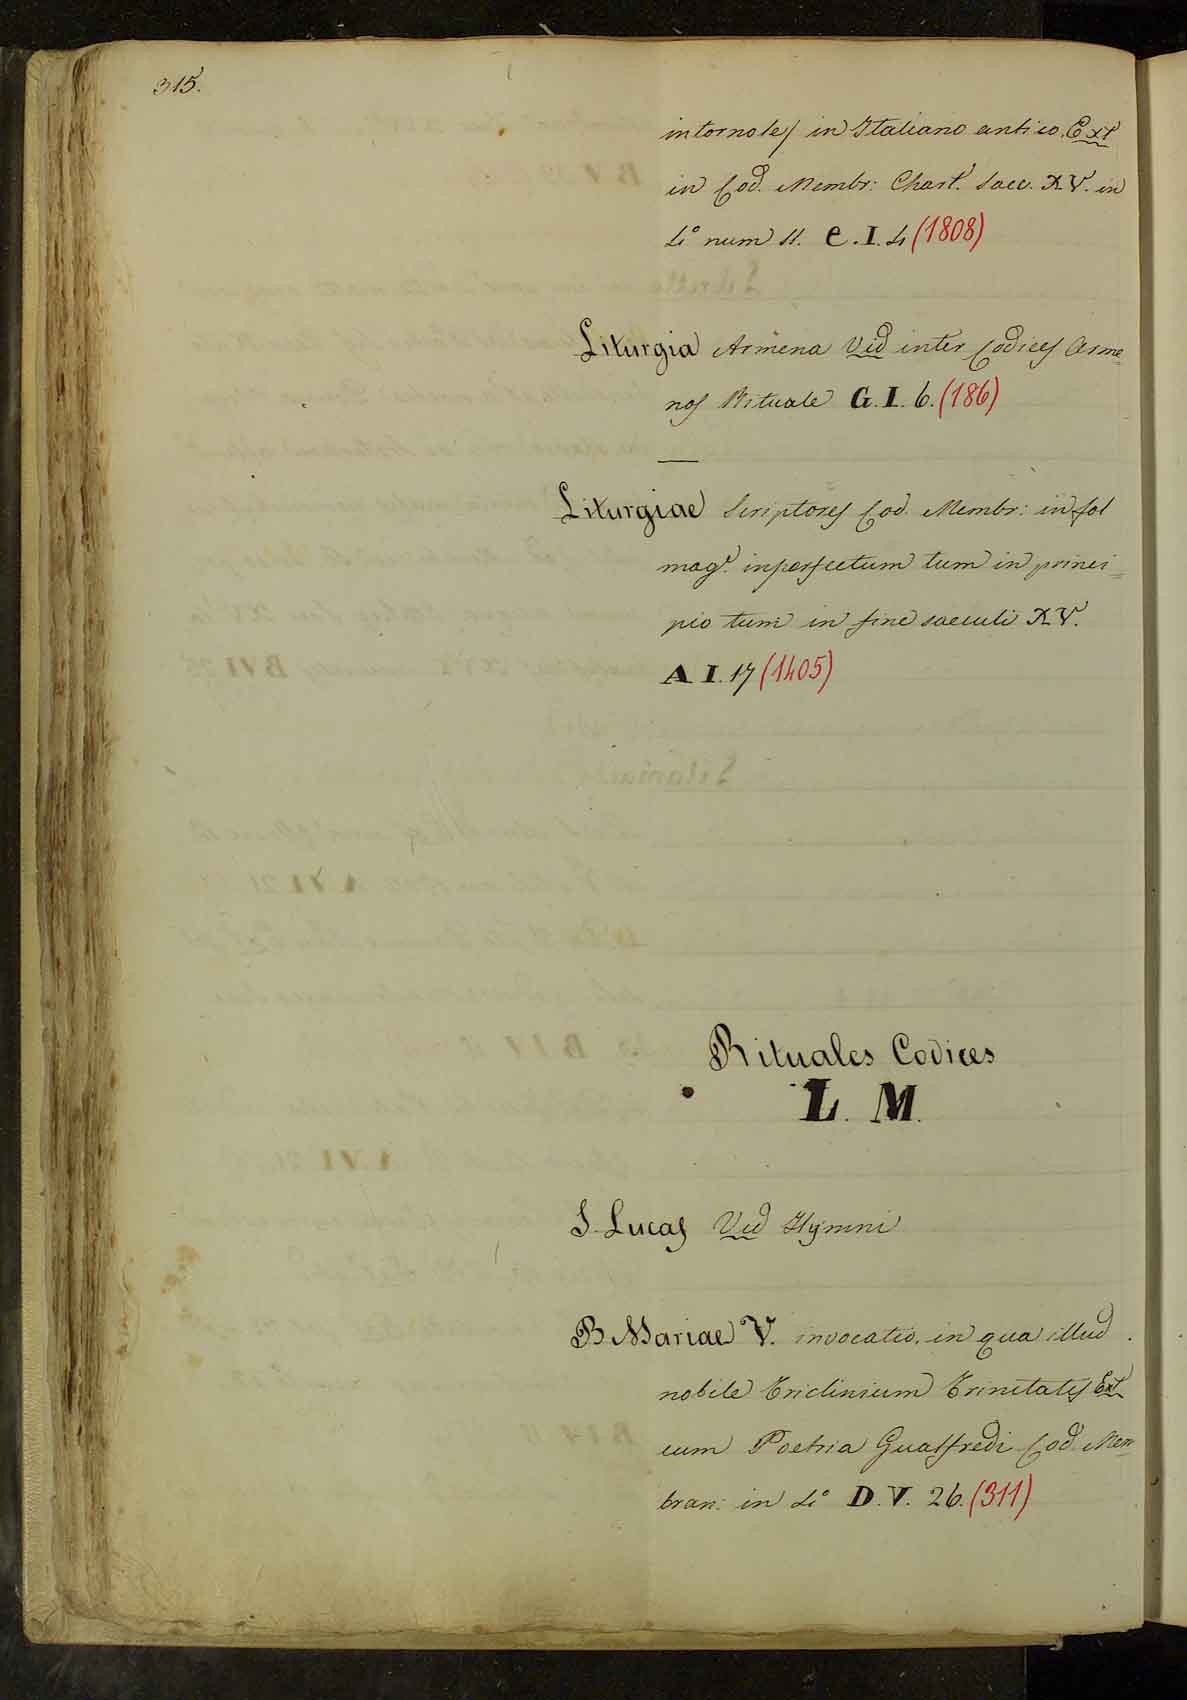 315.
intornoles in Italiano antico. Ext
in Cod. Membr: Chart. Saec. XV. in
4° num 11. e.I.4 (1808)
Liturgia Armena Vid inter Codices Arme=
nos Rituale G.I.6. (186)
Liturgiae Scriptores Cod. Membr: in fol
mag. inperfectum tum in princi=
pio tum in fine saeculi XV.
A I.17 (1405)
Rituales Codices
L. M.
S. Lucas Vid Hymni
B Mariae V. invocatio. in qua illud
nobile Triclinium Trinitatis Ext
cum Poetria Gualfredi Cod. Mem=
bran: in 4° D.V. 26. (311)